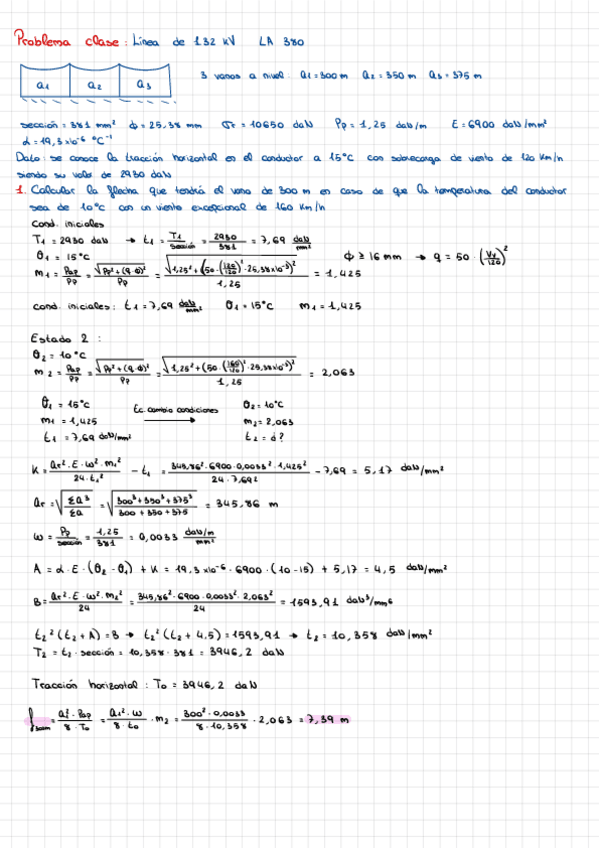 Problema clase: Línea de 132 kV LA 380
a1 a2 a3
3 vanos a nivel: a1=300 m a2=350 m a3=375 m
sección=381 mm² ϕ=25,38 mm σr=10650 daN Pp=1,25 daN/m E=6900 daN/mm²
α=19,3x10⁻⁶ °C⁻¹
Dato: se conoce la tracción horizontal en el conductor a 15°C con sobrecarga de viento de 120 km/h
siendo su valor de 2930 daN
1. Calcular la flecha que tendrá el vano de 300 m en caso de que la temperatura del conductor
sea de 10°C con un viento excepcional de 160 km/h
Cond. iniciales
T1=2930 daN → t1 = T1/sección = 2930/381 = 7,69 daN/mm²
θ1=15°C
ϕ ≥ 16 mm → q = 50·(Vv/120)²
m1 = Pap/Pp = √(Pp²+(q·ϕ)²)/Pp = √(1,25²+(50·(120/120)²·25,38x10⁻³)²)/1,25 = 1,425
cond. iniciales: t1=7,69 daN/mm² θ1=15°C m1=1,425
Estado 2:
θ2=10°C
m2 = Pap/Pp = √(Pp²+(q·ϕ)²)/Pp = √(1,25²+(50·(160/120)²·25,38x10⁻³)²)/1,25 = 2,063
θ1=15°C Ec. cambio condiciones θ2=10°C
m1=1,425 → m2=2,063
t1=7,69 daN/mm² t2=¿?
K = ar²·E·ω²·m1²/24·t1² - t1 = 345,86²·6900·0,0033²·1,425²/24·7,69² - 7,69 = 5,17 daN/mm²
ar = √(Σa³/Σa) = √(300³+350³+375³/300+350+375) = 345,86 m
ω = Pp/sección = 1,25/381 = 0,0033 daN/m/mm²
A = α·E·(θ2-θ1)+K = 19,3x10⁻⁶·6900·(10-15)+5,17 = 4,5 daN/mm²
B = ar²·E·ω²·m2²/24 = 345,86²·6900·0,0033²·2,063²/24 = 1593,91 daN³/mm⁶
t2²(t2+A)=B → t2²(t2+4,5)=1593,91 → t2=10,358 daN/mm²
T2=t2·sección=10,358·381=3946,2 daN
Tracción horizontal: T0=3946,2 daN
f300m = a1²·Pap/8·T0 = a1²·ω/8·t0·m2 = 300²·0,0033/8·10,358·2,063 = 7,39 m